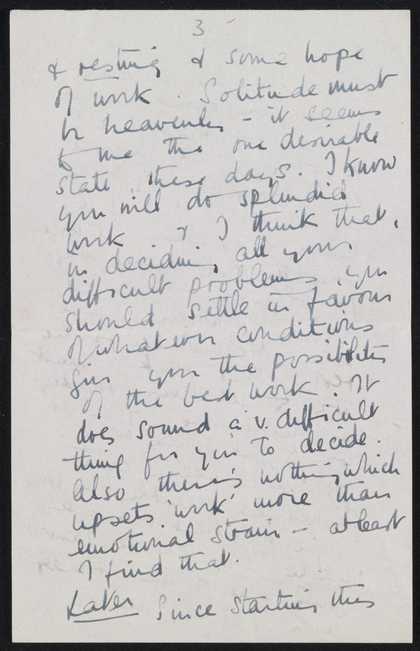 3
& resting & some hope
of work. Solitude must
be heavenly - it seems
to me the one desirable
state these days. I know
you will do splendid
work & I think that,
in deciding all your
difficult problems, you
should settle in favour
of whatever conditions
give you the possibilities
of the best work. It
does sound a v. difficult
thing for you to decide.
Also there's nothing which
upsets 'work' more than
emotional strain - at least
I find that.
Later Since starting this